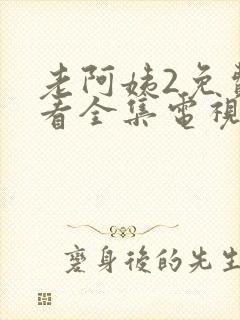 老阿姨2免費
看全集電視
變身後的先生